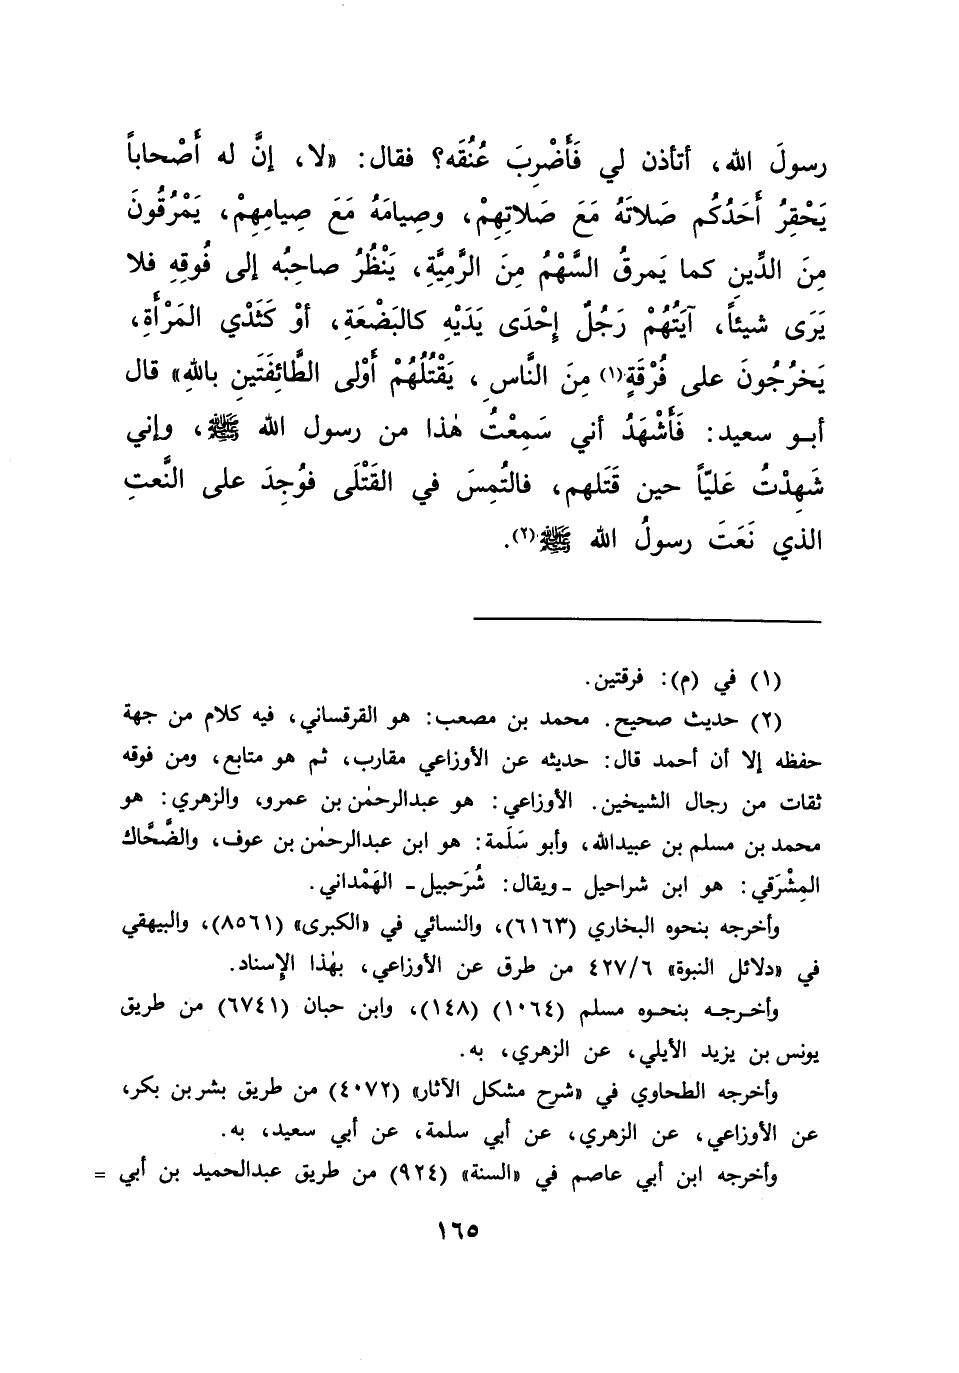 رسولَ الله، أتأذن لي فَأَضْرِبَ عُنُقَه؟ فقال: «لا، إنَّ له أَصْحاباً
يَحْقِرُ أَحَدُكُم صَلاتَهُ مَعَ صَلاتِهِمْ، وصِيامَهُ مَعَ صِيامِهِمْ، يَمْرُقُونَ
مِنَ الدِّينِ كما يَمرقُ السَّهْمُ مِنَ الرَّمِيَّةِ، يَنْظُرُ صاحِبُه إلى فُوقِهِ فلا
يَرَى شيئاً، آيَتُهُمْ رَجُلٌ إِحْدَى يَدَيْهِ كالبَضْعَةِ، أوْ كَثَدْي المَرْأَةِ،
يَخرُجُونَ على فُرْقَةٍ(١) مِنَ النَّاسِ، يَقْتُلُهُمْ أَوْلى الطَّائِفَتَينِ باللهِ» قال
أبو سعيد: فَأَشْهَدُ أني سَمِعْتُ هٰذا من رسول الله ﷺ، وإني
شَهِدْتُ عَليّاً حين قَتَلهم، فالتُمِسَ في القَتْلَى فوُجِدَ على النَّعتِ
الذي نَعَتَ رسولُ الله ﷺ(٢).
(١) في (م): فرقتين.
(٢) حديث صحيح. محمد بن مصعب: هو القرقساني، فيه كلام من جهة
حفظه إلا أن أحمد قال: حديثه عن الأوزاعي مقارب، ثم هو متابع، ومن فوقه
ثقات من رجال الشيخين. الأوزاعي: هو عبدالرحمٰن بن عمرو، والزهري: هو
محمد بن مسلم بن عبيدالله، وأبو سَلَمة: هو ابن عبدالرحمٰن بن عوف، والضَّحَّاك
المِشْرَقي: هو ابن شراحيل -ويقال: شُرَحبيل- الهَمْداني.
وأخرجه بنحوه البخاري (٦١٦٣)، والنسائي في «الكبرى» (٨٥٦١)، والبيهقي
في «دلائل النبوة» ٤٢٧/٦ من طرق عن الأوزاعي، بهٰذا الإسناد.
وأخرجه بنحوه مسلم (١٠٦٤) (١٤٨)، وابن حبان (٦٧٤١) من طريق
يونس بن يزيد الأيلي، عن الزهري، به.
وأخرجه الطحاوي في «شرح مشكل الآثار» (٤٠٧٢) من طريق بشر بن بكر،
عن الأوزاعي، عن الزهري، عن أبي سلمة، عن أبي سعيد، به.
وأخرجه ابن أبي عاصم في «السنة» (٩٢٤) من طريق عبدالحميد بن أبي =
١٦٥